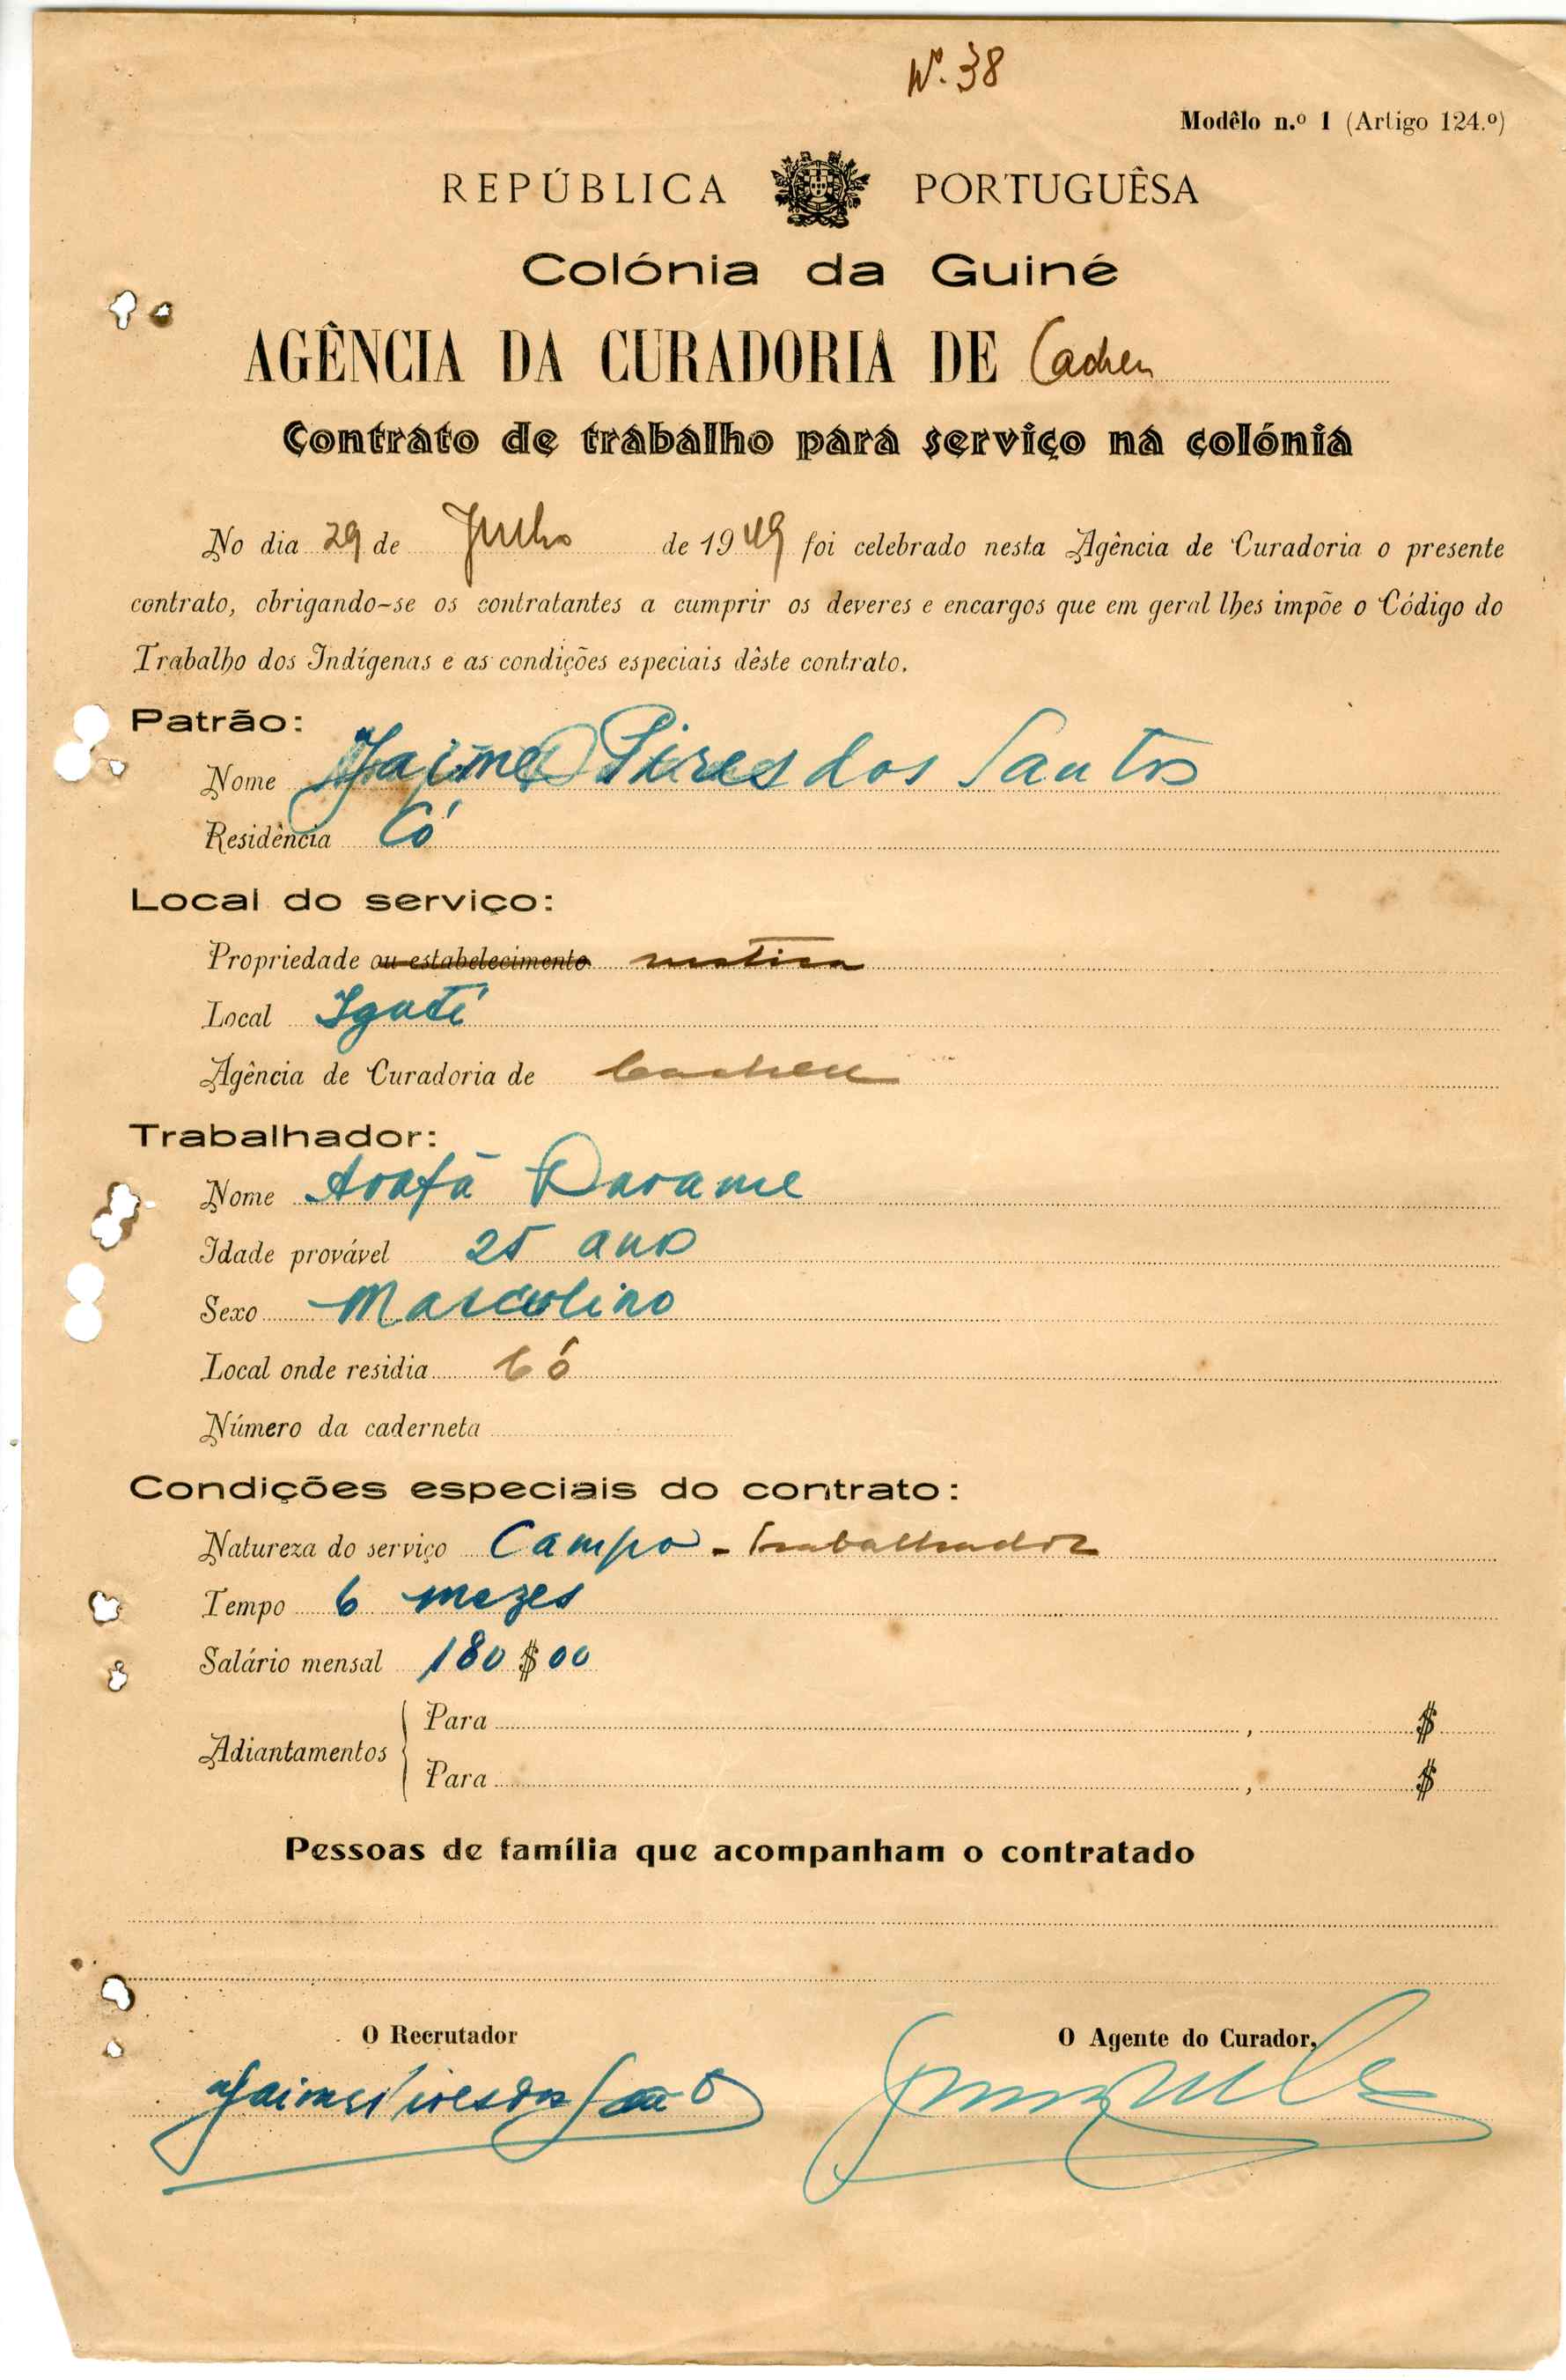 Nº. 38
Modêlo n.º 1 (Artigo 124.º)
REPÚBLICA PORTUGUÊSA
Colónia da Guiné
AGÊNCIA DA CURADORIA DE Cacheu
Contrato de trabalho para serviço na colónia
No dia 29 de Julho de 1949 foi celebrado nesta Agência de Curadoria o presente
contrato, obrigando-se os contratantes a cumprir os deveres e encargos que em geral lhes impõe o Código do
Trabalho dos Indígenas e as condições especiais dêste contrato.
Patrão:
Nome Jaime Pires dos Santos
Residência Có
Local do serviço:
Propriedade ou estabelecimento
Local Igati
Agência de Curadoria de Cacheu
Trabalhador:
Nome Arafã Darame
Idade provável 25 anos
Sexo Masculino
Local onde residia Có
Número da caderneta
Condições especiais do contrato:
Natureza do serviço Campo - trabalhador
Tempo 6 mezes
Salário mensal 180$00
Adiantamentos
Para , $
Para , $
Pessoas de família que acompanham o contratado
O Recrutador
O Agente do Curador,
Jaime Pires dos Santos